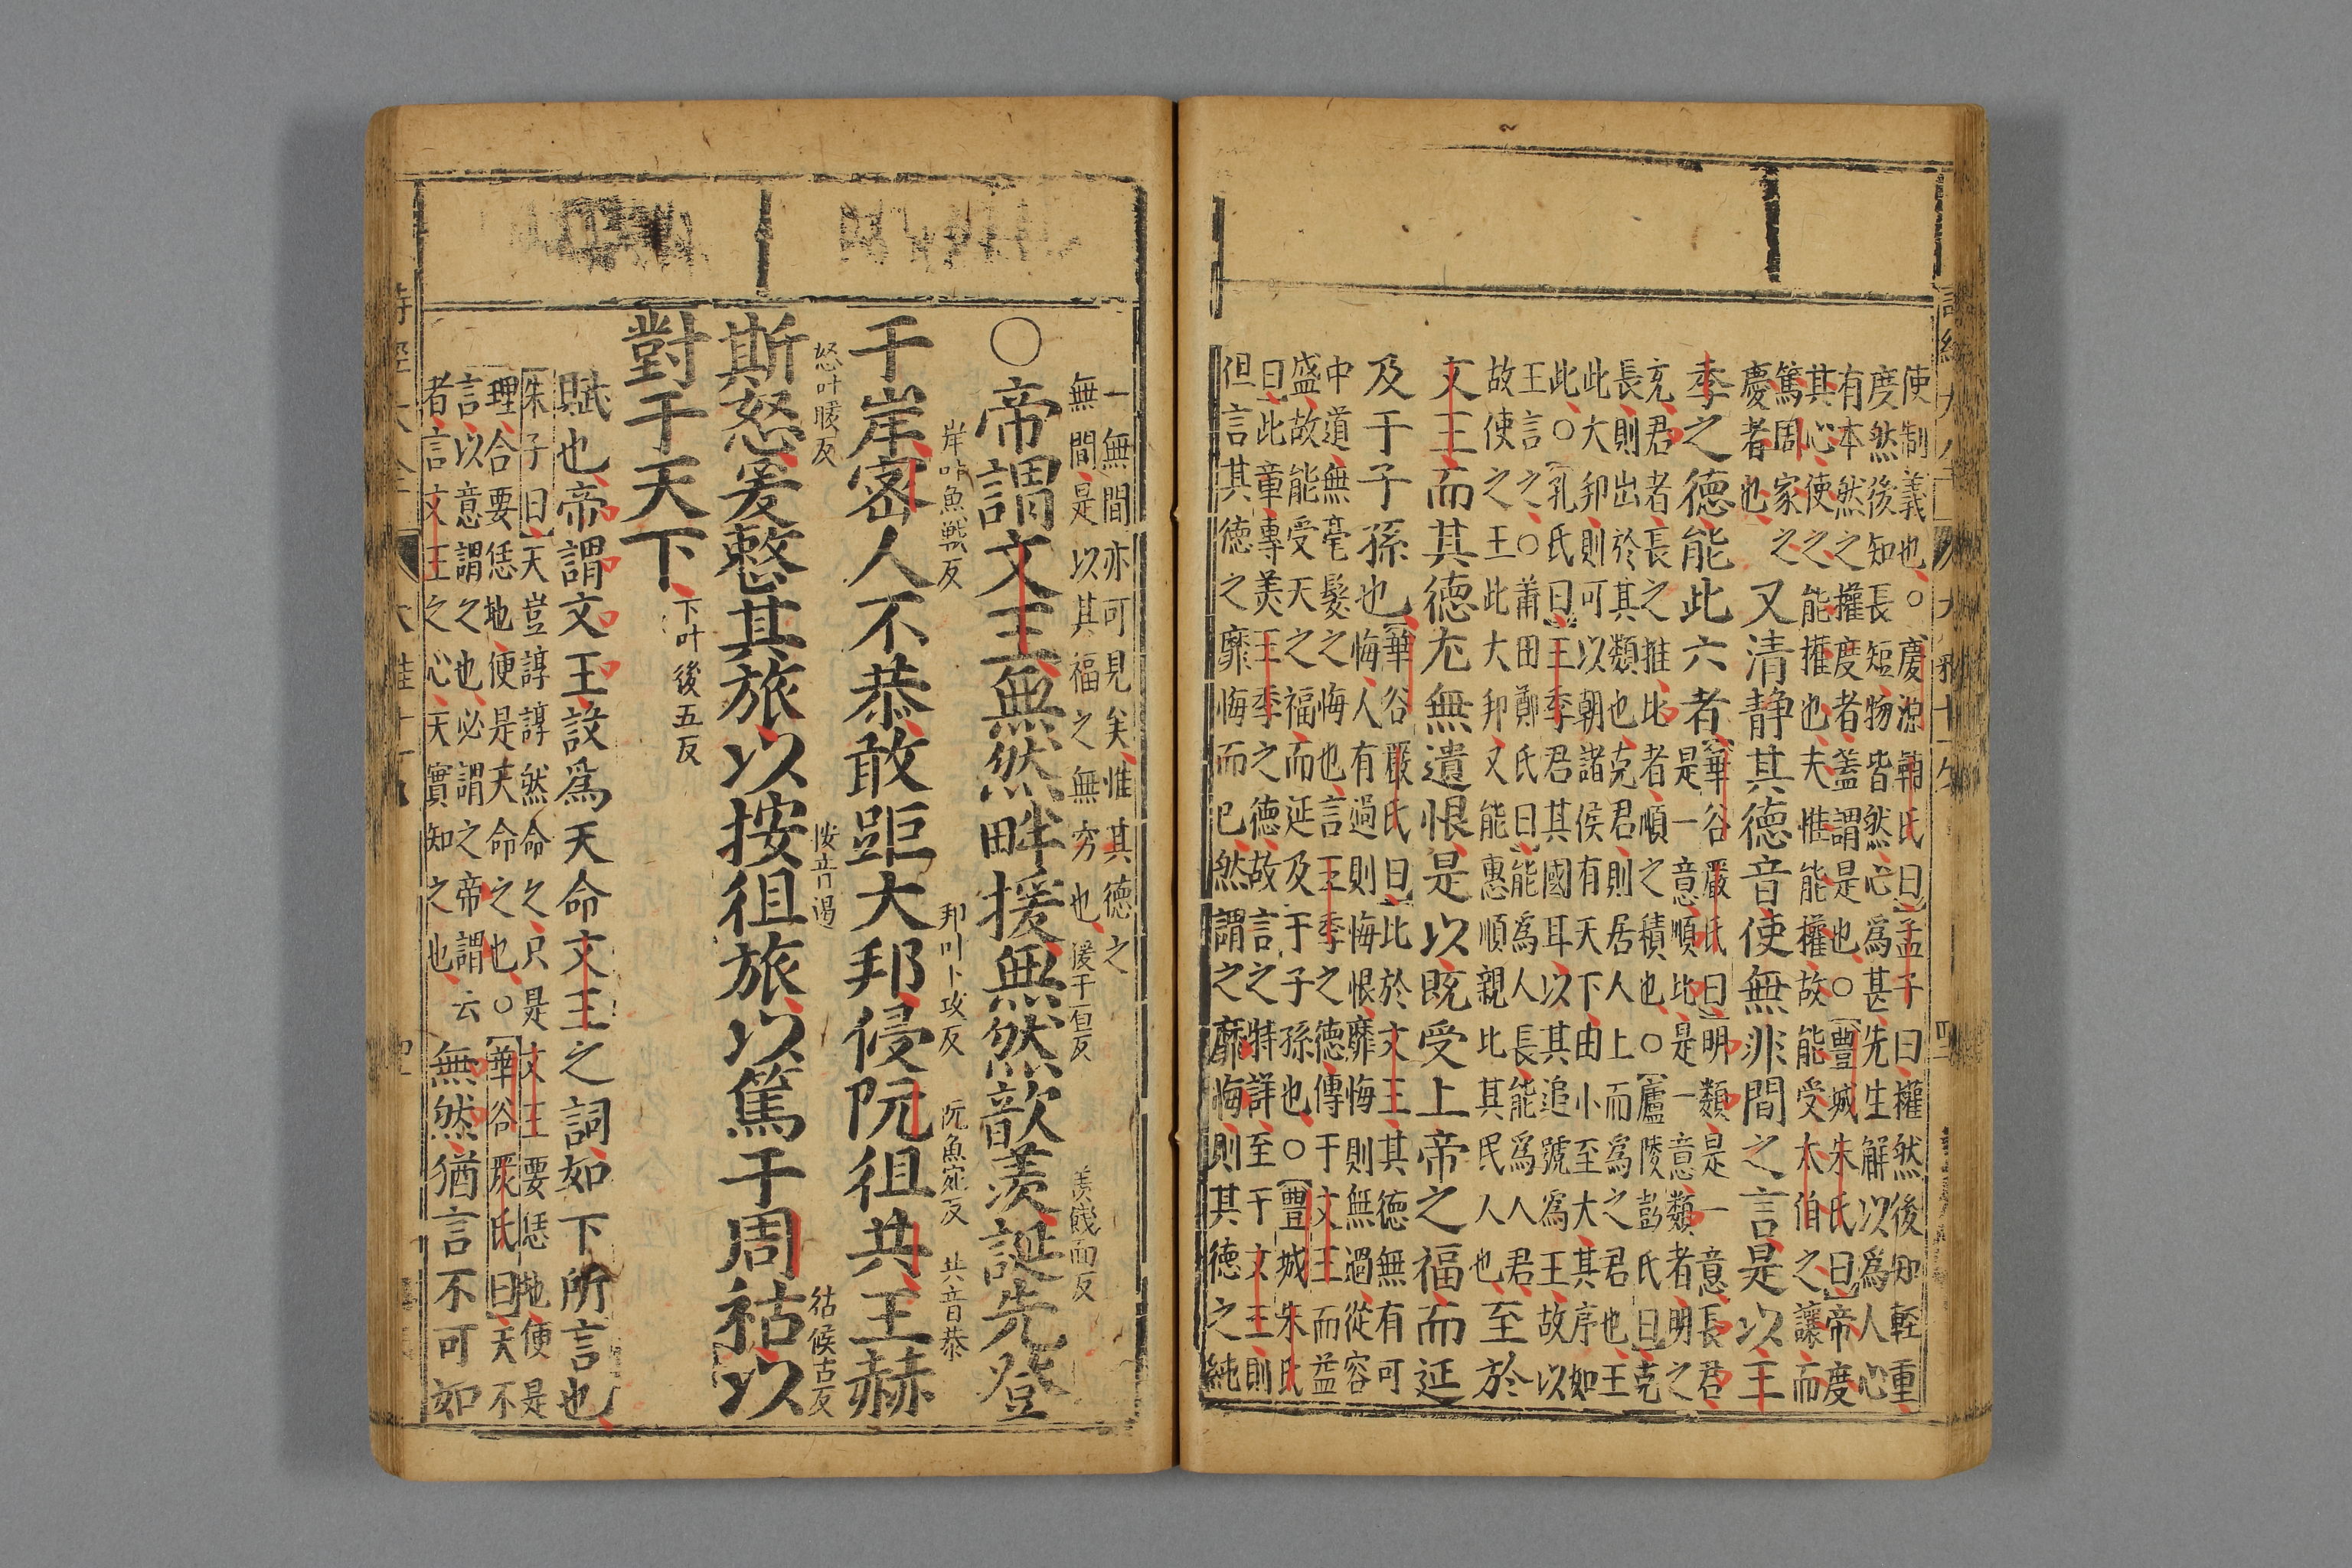 使制義也○慶源輔氏曰孟子曰權然後知輕重
度然後知長短物皆然心為甚先生解以為人心
有本然之權度者蓋謂是也○豐城朱氏曰帝度
其心使之能權也夫惟能權故能受太伯之讓而
篤周家之
慶者也
又清靜其德音使無非間之言是以王
季之德能此六者
華谷嚴氏曰明類是一意長君
是一意順比是一意類者明之
充君者長之推比者順之積也○廬陵彭氏曰克
長則出於其類也克君則居人上而為之君也王
此大邦則可以朝諸侯有天下由小至大其序如
此○孔氏曰王季君其國耳以其追號為王故以
王言之○莆田鄭氏曰能為人長能為人君至於
故使之王此大邦又能惠順親比其民人也
至於
文王而其德尤無遺恨是以既受上帝之福而延
及于子孫也
華谷嚴氏曰比於文王其德無有可
悔人有過則悔恨靡悔則無過從容
中道無毫髮之悔也言王季之德傳于文王而益
盛故能受天之福而延及于子孫也○豐城朱氏
曰此章專美王季之德故言之特詳至于文王則
但言其德之靡悔而已然謂之靡悔則其德之純
一無間亦可見矣惟其德之
無間是以其福之無穷也
○帝謂文王無然畔援無然歆羨誕先登
援于亘反
羨餞面反
于岸密人不恭敢距大邦侵阮徂共王赫
岸叶魚戰反
邦叶卜攻反
阮魚宛反
共音恭
斯怒爰整其旅以按徂旅以篤于周祜以
怒叶暖反
按音遏
祜候古反
對于天下
下叶後五反
賦也帝謂文王設為天命文王之詞如下所言也
朱子曰天豈諄諄然命之只是文王要恁地便是
理合要恁地便是天命之也○華谷嚴氏曰天不
言以意謂之也必謂之帝謂云
者言文王之心天實知之也
無然猶言不可如